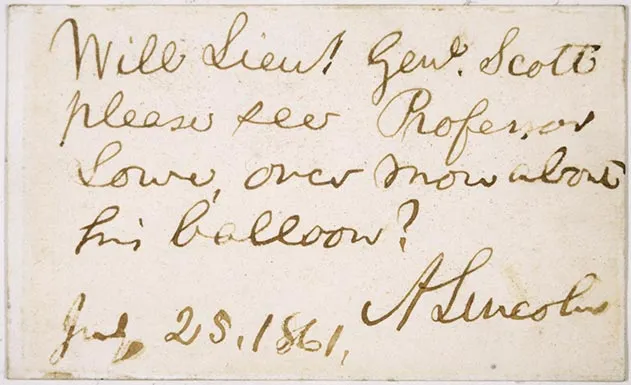 Will Lieut. Genl. Scott
please see Professor
Lowe, once more about
his balloon?
A. Lincoln
July 25, 1861.